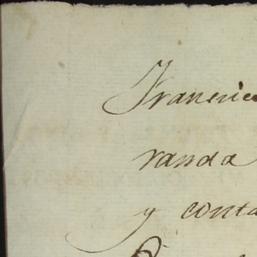 Francisc
randa
y conta